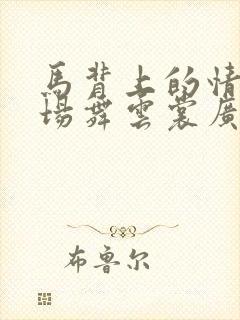 馬背上的情
場舞雲裳廣
布鲁尔